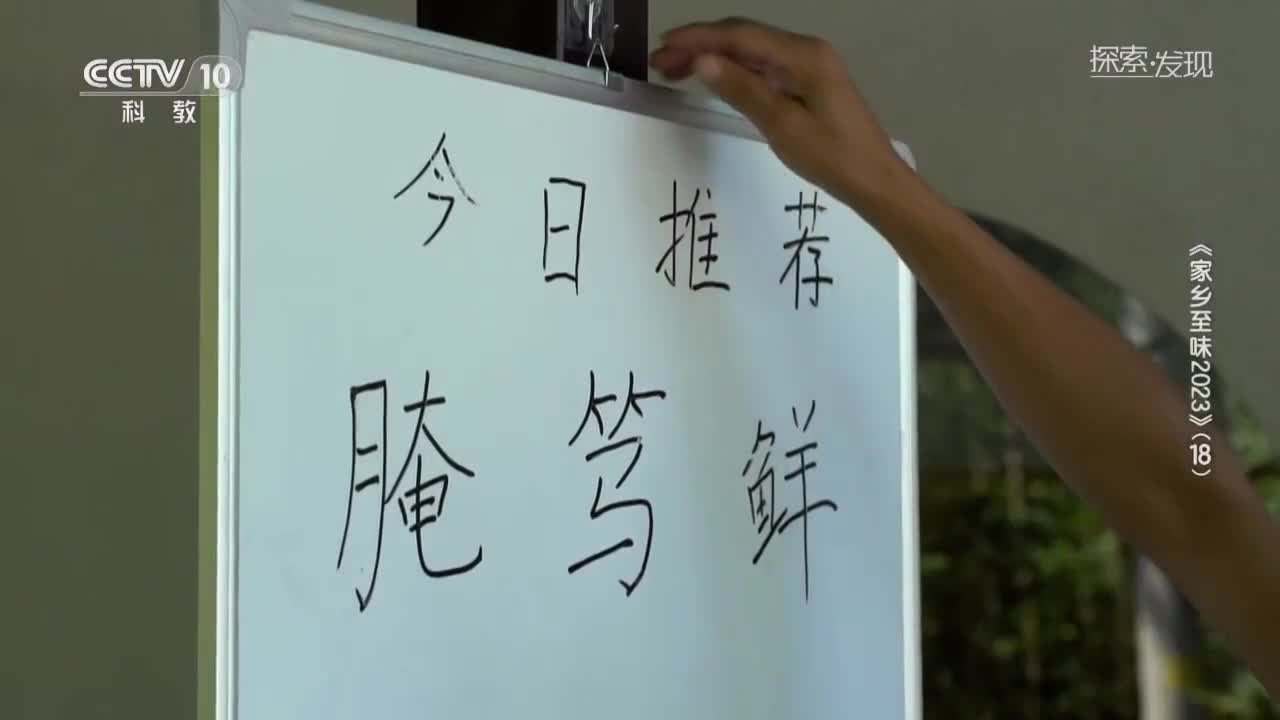 CCTV 10
科教
探索·发现
今日推荐
腌笃鲜
《家乡至味2023》(18)